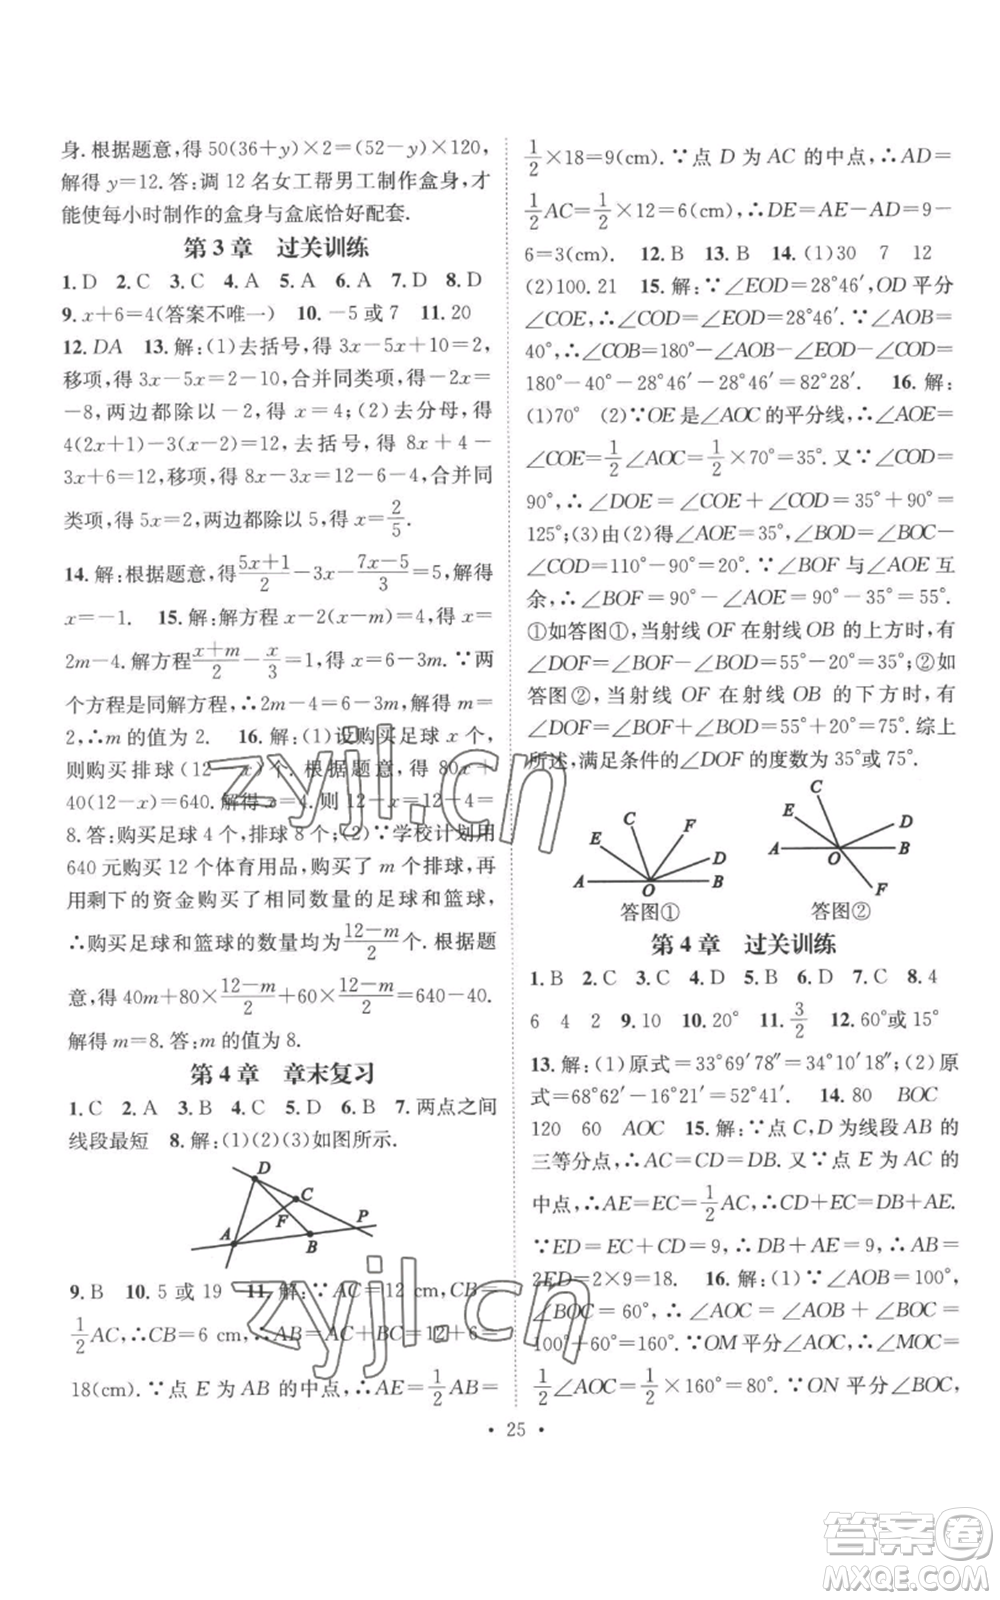 身. 根据题意，得 50(36+y)×2=(52-y)×120,
解得 y=12. 答：调 12 名女工帮男工制作盒身，才
能使每小时制作的盒身与盒底恰好配套.
第 3 章　过关训练
1. D　2. C　3. C　4. A　5. A　6. A　7. D　8. D
9. x+6=4(答案不唯一)　10. -5 或 7　11. 20
12. DA　13. 解：(1)去括号，得 3x-5x+10=2,
移项，得 3x-5x=2-10, 合并同类项，得-2x=
-8, 两边都除以-2, 得 x=4; (2)去分母，得
4(2x+1)-3(x-2)=12, 去括号，得 8x+4-
3x+6=12, 移项，得 8x-3x=12-6-4, 合并同
类项，得 5x=2, 两边都除以 5, 得 x=2/5.
14. 解：根据题意，得(5x+1)/2-3x-(7x-5)/3=5, 解得
x=-1.　15. 解：解方程 x-2(x-m)=4, 得 x=
2m-4. 解方程(x+m)/2-x/3=1, 得 x=6-3m. ∵两
个方程是同解方程，∴2m-4=6-3m. 解得 m=
2, ∴m 的值为 2.　16. 解：(1)设购买足球 x 个，
则购买排球(12-x)个. 根据题意，得 80x+
40(12-x)=640. 解得 x=4. 则 12-x=12-4=
8. 答：购买足球 4 个，排球 8 个；(2)∵学校计划用
640 元购买 12 个体育用品，购买了 m 个排球，再
用剩下的资金购买了相同数量的足球和篮球，
∴购买足球和篮球的数量均为(12-m)/2个. 根据题
意，得 40m+80×(12-m)/2+60×(12-m)/2=640-40.
解得 m=8. 答：m 的值为 8.
第 4 章　章末复习
1. C　2. A　3. B　4. B　5. B　6. B　7. 两点之间
线段最短　8. 解：(1)(2)(3)如图所示.
D
C
F
P
A
B
9. B　10. 5 或 19　11. 解：∵AC=12 cm, CB=
1/2AC, ∴CB=6 cm, ∴AB=AC+BC=12+6=
18(cm). ∵点 E 为 AB 的中点，∴AE=1/2AB=
1/2×18=9(cm). ∵点 D 为 AC 的中点，∴AD=
1/2AC=1/2×12=6(cm), ∴DE=AE-AD=9-
6=3(cm).　12. B　13. B　14. (1)30　7　12
(2)100.21　15. 解：∵∠EOD=28°46′, OD 平分
∠COE, ∴∠COD=∠EOD=28°46′. ∵∠AOB=
40°, ∴∠COB=180°-∠AOB-∠EOD-∠COD=
180°-40°-28°46′-28°46′=82°28′.　16. 解：
(1)70°　(2)∵OE 是∠AOC 的平分线，∴∠AOE=
∠COE=1/2∠AOC=1/2×70°=35°. 又∵∠COD=
90°, ∴∠DOE=∠COE+∠COD=35°+90°=
125°; (3)由(2)得∠AOE=35°, ∠BOD=∠BOC-
∠COD=110°-90°=20°. ∵∠BOF 与∠AOE 互
余，∴∠BOF=90°-∠AOE=90°-35°=55°.
①如答图①，当射线 OF 在射线 OB 的上方时，有
∠DOF=∠BOF-∠BOD=55°-20°=35°; ②如
答图②，当射线 OF 在射线 OB 的下方时，有
∠DOF=∠BOF+∠BOD=55°+20°=75°. 综上
所述，满足条件的∠DOF 的度数为 35°或 75°.
C
E
F
D
A
O
B
答图①
C
E
D
A
O
B
F
答图②
第 4 章　过关训练
1. B　2. C　3. C　4. D　5. B　6. D　7. C　8. 4
6　4　2　9. 10　10. 20°　11. 3/2　12. 60°或 15°
13. 解：(1)原式=33°69′78″=34°10′18″; (2)原
式=68°62′-20°18′=48°44′.　14. 80　BOC
120　60　AOC　15. 解：∵点 C, D 为线段 AB 的
三等分点，∴AC=CD=DB. 又∵点 E 为 AC 的
中点，∴AE=EC=1/2AC, ∴CD+EC=DB+AE.
∵ED=EC+CD=9, ∴DB+AE=9, ∴AB=
2ED=2×9=18.　16. 解：∵∠AOB=100°,
∠BOC=60°, ∴∠AOC=∠AOB+∠BOC=
100°+60°=160°. ∵OM 平分∠AOC, ∴∠MOC=
1/2∠AOC=1/2×160°=80°. ∵ON 平分∠BOC,
• 25 •
zyjl.cn
zyjl.cn
答案圈
MXQE.COM